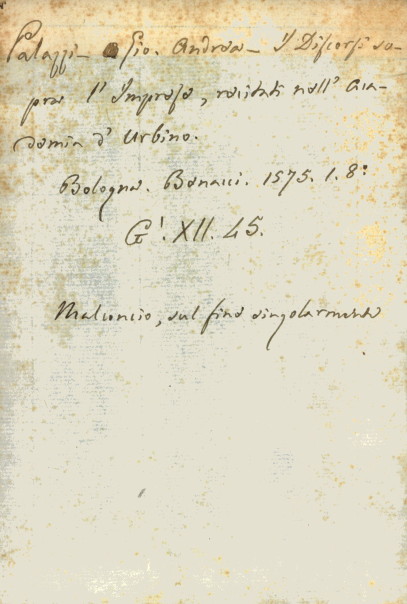 Palazzi - Gio. Andrea - I Discorsi so-
pra l'Imprese, recitati nell' Aca-
demia d' Urbino.
Bologna. Benacci. 1575. 1. 8º
G'. XII. 45.
Malconcio, sul fine singolarmente